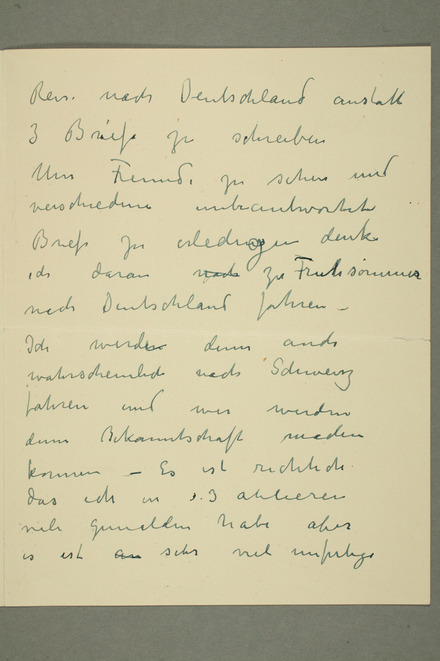 Reis. nach Deutschland anstatt
3 Briefe zu schreiben
Um Freunde zu sehen und
verschiedene unbeantwortete
Briefe zu erledigen denke
ich daran nach zu Fruhsommer
nach Deutschland fahren –
Ich werde dann auch
wahrscheinlich nach Schweiz
fahren und wir werden
dann Bekanntschaft machen
konnen – Es ist richtich
das ich in 3 atelieren
viele gemalden habe aber
es ist an sehr viel unfertige